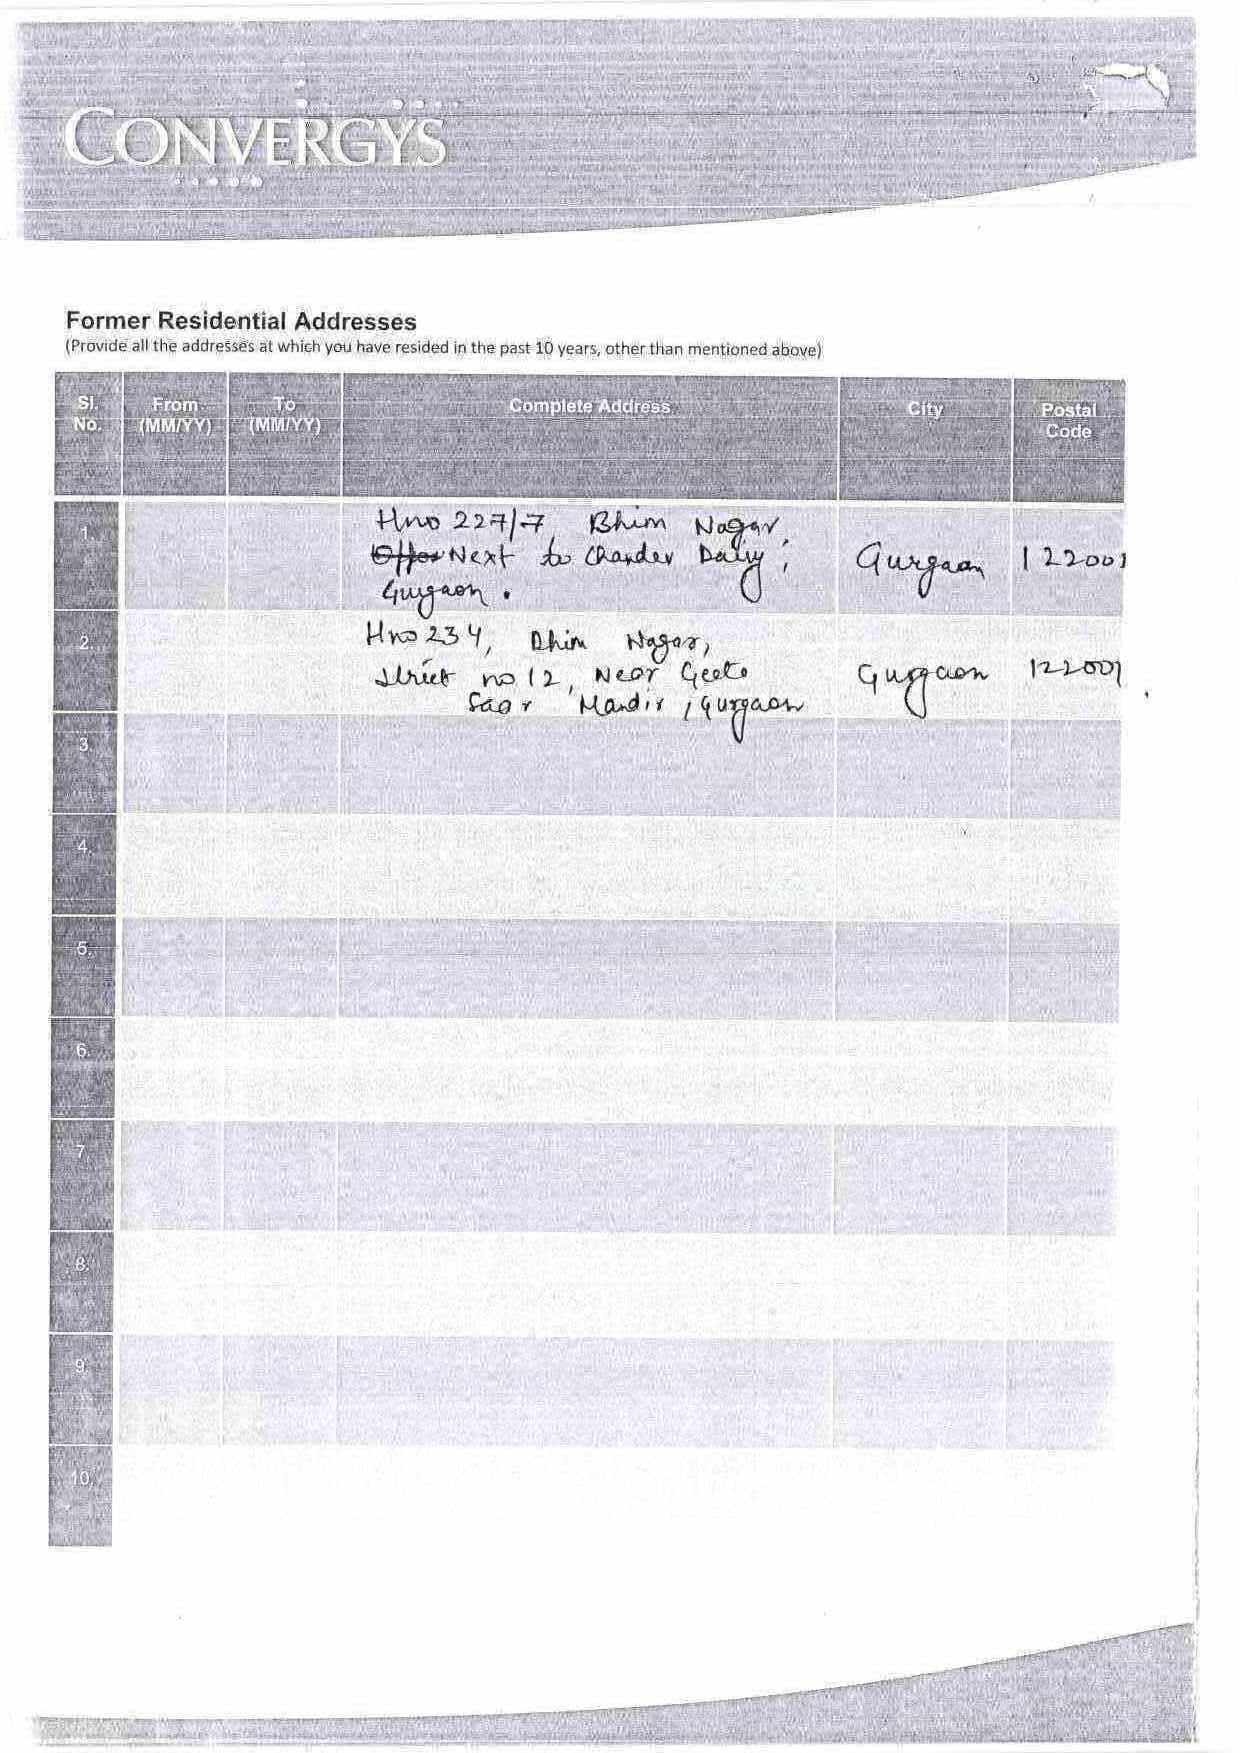 CONVERGYS
Former Residential Addresses
(Provide all the addresses at which you have resided in the past 10 years, other than mentioned above)
Sl. No. From (MM/YY) To (MM/YY) Complete Address City Postal Code
1. Hno 227/7, Bhim Nagar,
Next to Chander Dairy, Gurgaon 122001
Gurgaon.
2. Hno 234, Bhim Nagar,
Street no 12, Near Geeta Gurgaon 122001
Saar Mandir, Gurgaon
3.
4.
5.
6.
7.
8.
9.
10.